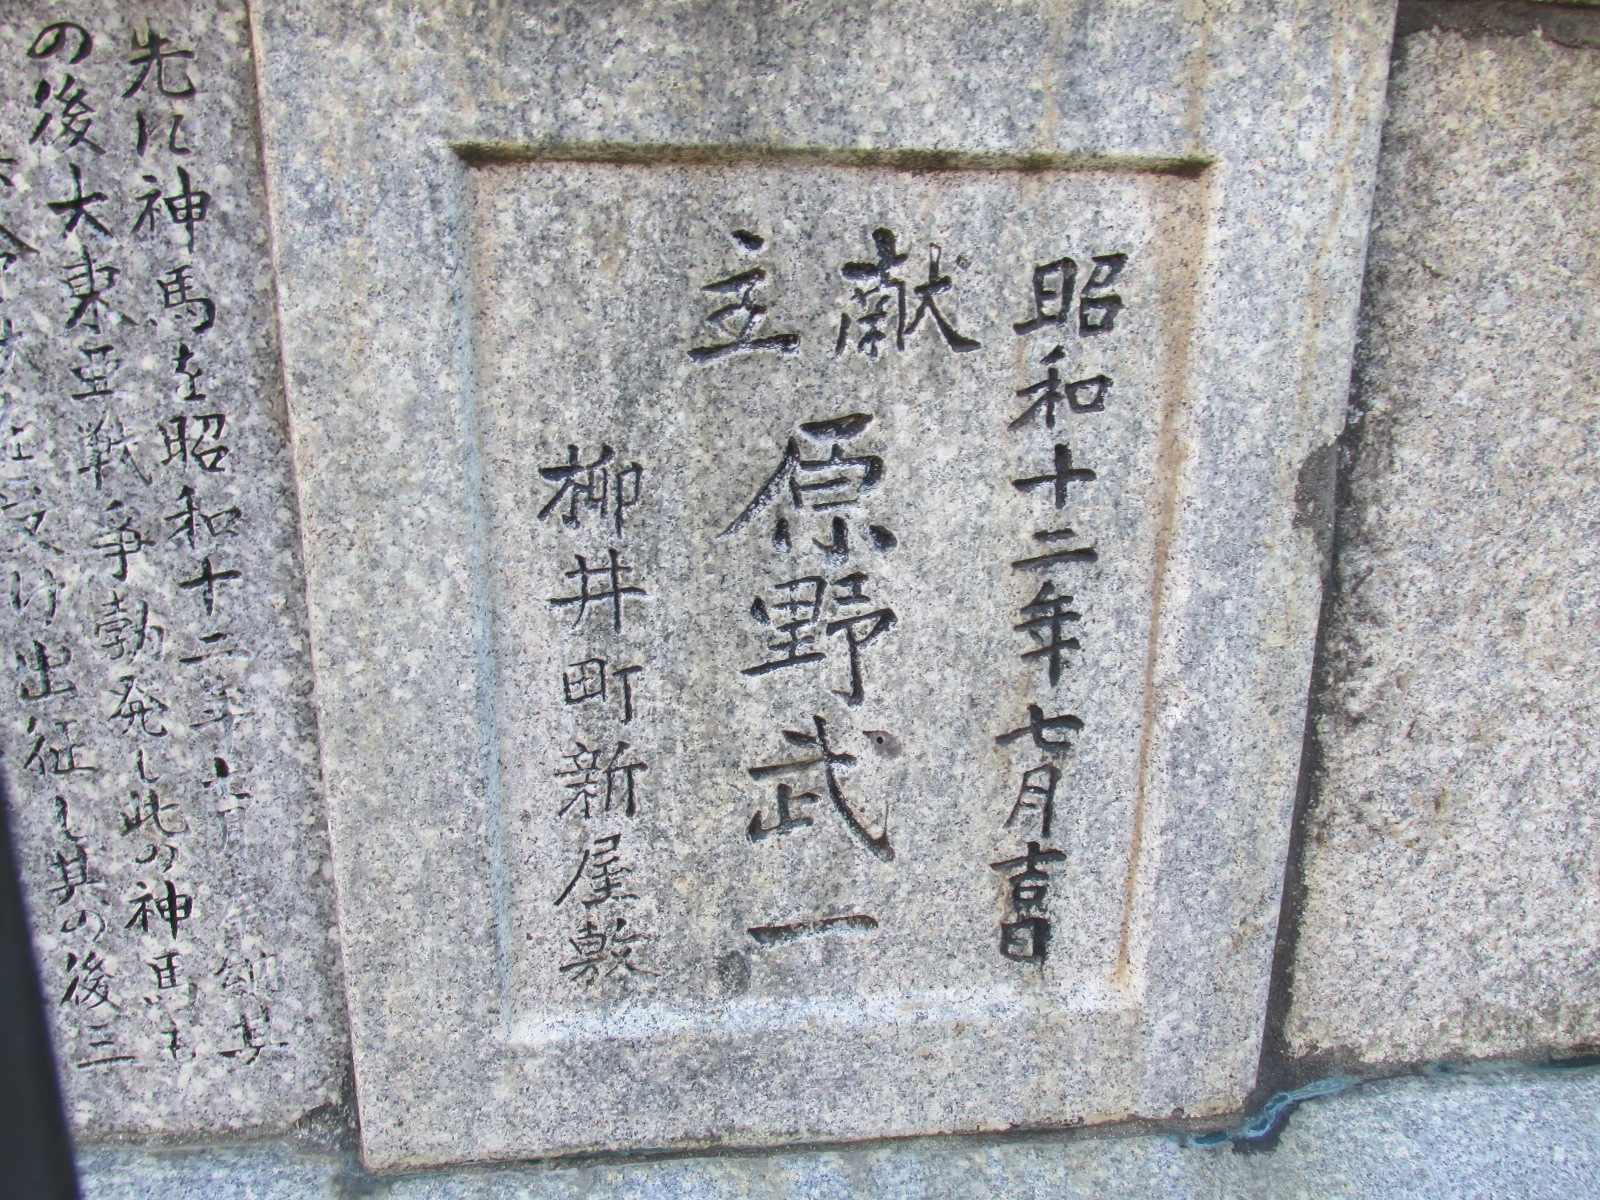 昭和十二年七月吉日
献主 原野武一
柳井町新屋敷
先に神馬を昭和十二年七月納其
の後大東亜戦争勃発し此の神馬も
受け出征し其の後三